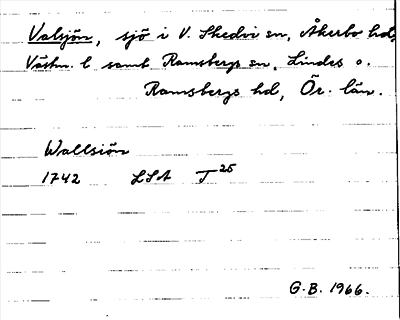 Valsjön, sjö i V. Skedvi sn, Åkerbo hd,
Västm. l samt Ramsbergs sn, Lindes o.
Ramsbergs hd, Ör. län.
Wallsiön
1742 LSA T25
G.B. 1966.